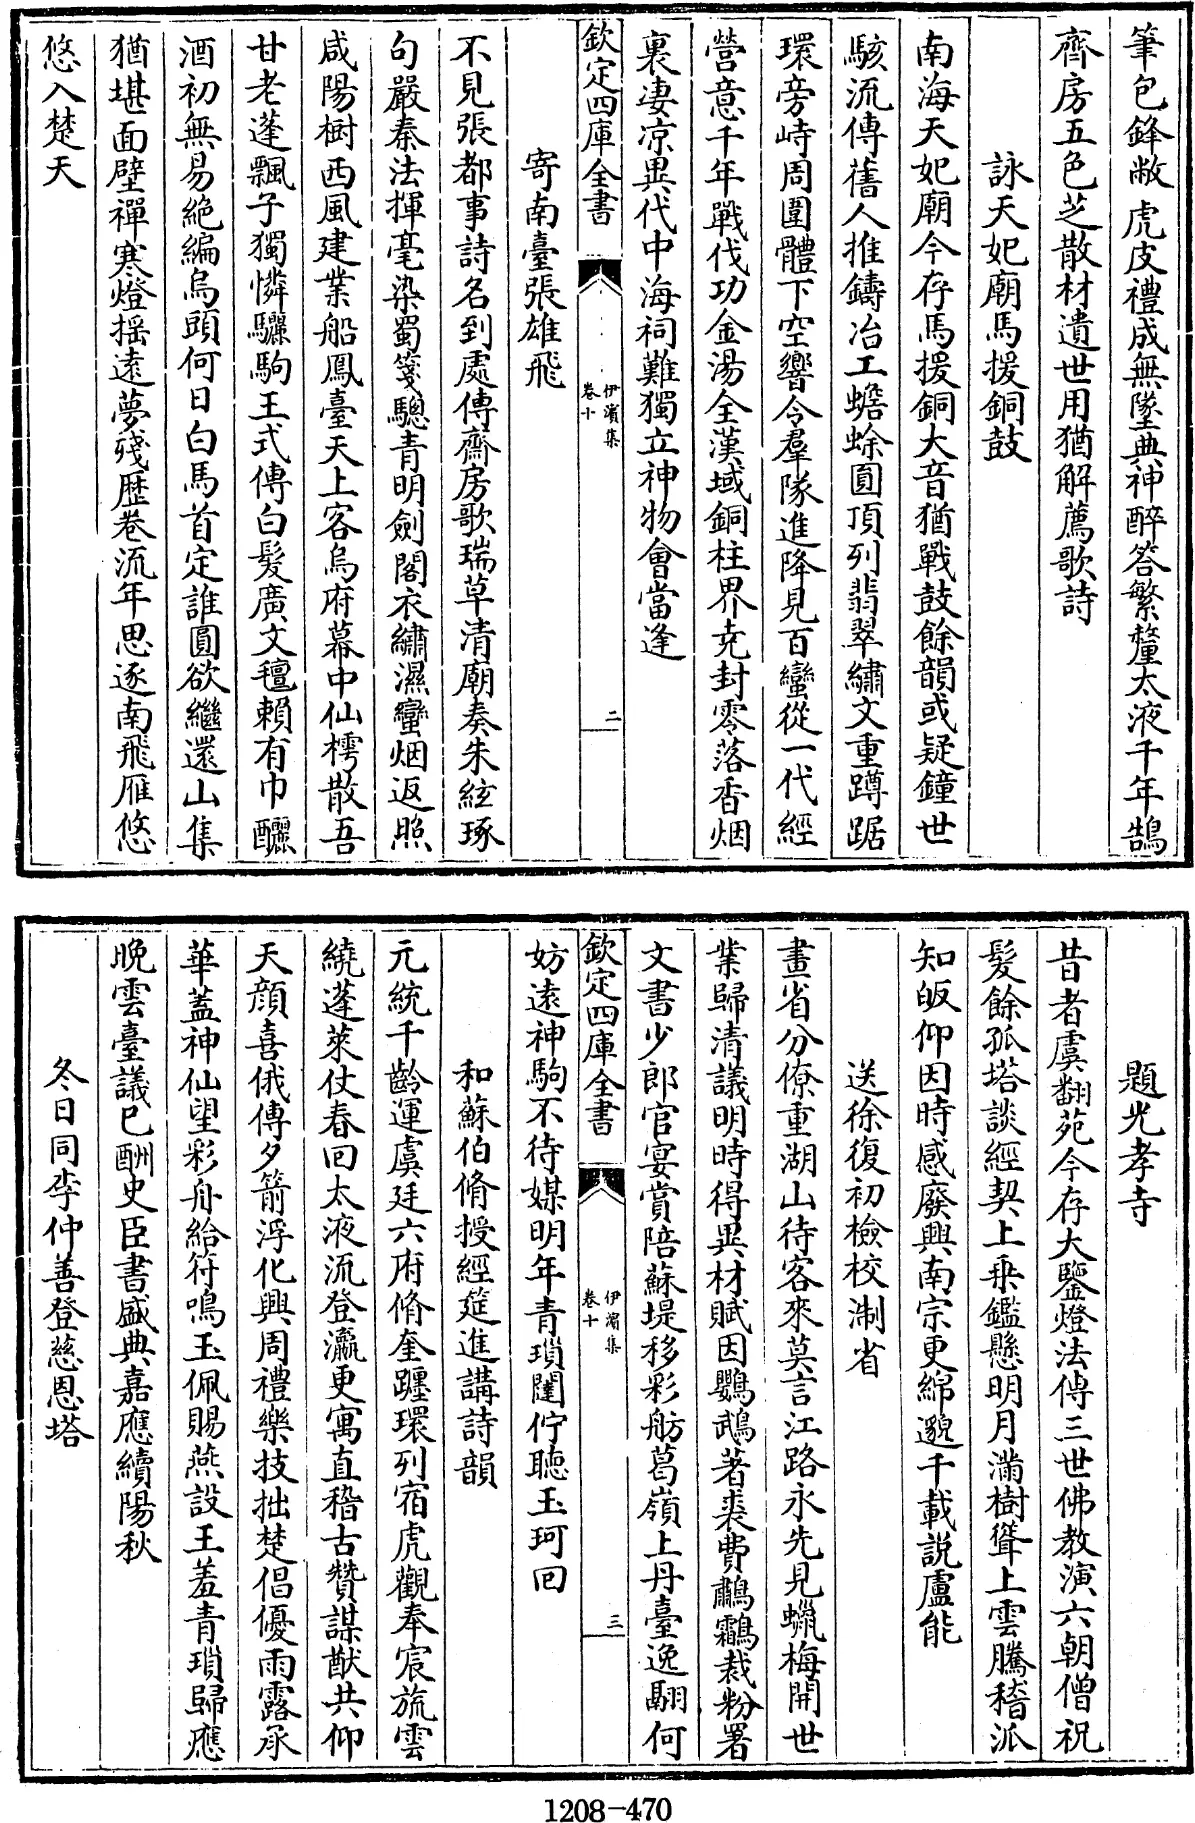 筆包鋒敝虎皮禮成無墜典神醉答繁釐太液千年鵠
齊房五色芝散材遺世用猶解薦歌詩
詠天妃廟馬援銅鼓
南海天妃廟今存馬援銅大音猶戰鼓餘韻或疑鐘世
駭流傳舊人推鑄冶工蟾蜍圓頂列翡翠繡文重蹲踞
環旁峙周圍體下空響令羣隊進降見百蠻從一代經
營意千年戰伐功金湯全漢域銅柱界尭封零落香烟
裏凄凉異代中海祠難獨立神物會當逢
欽定四庫全書
伊濵集
卷十
二
寄南臺張雄飛
不見張都事詩名到處傳齋房歌瑞草清廟奏朱絃琢
句嚴秦法揮毫染蜀箋驄青明劍閣衣繡濕蠻烟返照
咸陽樹西風建業船鳳臺天上客烏府幕中仙樗散吾
甘老蓬飄子獨憐驪駒王式傳白髮廣文氊賴有巾釃
酒初無易絶編烏頭何日白馬首定誰圓欲繼還山集
猶堪面壁禪寒燈揺逺夢殘歴卷流年思逐南飛雁悠
悠入楚天
題光孝寺
昔者虞翻苑今存大鑒燈法傳三世佛教演六朝僧祝
髪餘孤塔談經契上乗鑑懸明月滿樹聳上雲騰稽派
知皈仰因時感廢興南宗更綿邈千載説盧能
送徐復初檢校淛省
畫省分僚重湖山待客來莫言江路永先見蠟梅開世
業歸清議明時得異材賦因鸚鵡著裘費鷫鸘裁粉署
文書少郎官宴賞陪蘇堤移彩舫葛嶺上丹臺逸翮何
欽定四庫全書
伊濵集
卷十
三
妨逺神駒不待媒明年青瑣闥佇聽玉珂回
和蘇伯脩授經筵進講詩韻
元統千齡運虞廷六府脩奎躔環列宿虎觀奉宸旒雲
繞蓬萊仗春回太液流登瀛更寓直稽古贊謀猷共仰
天顔喜俄傳夕箭浮化興周禮樂技拙楚倡優雨露承
華蓋神仙望彩舟給符鳴玉佩賜燕設王羞青瑣歸應
晩雲臺議已酬史臣書盛典嘉應續陽秋
冬日同李仲善登慈恩塔
1208-470